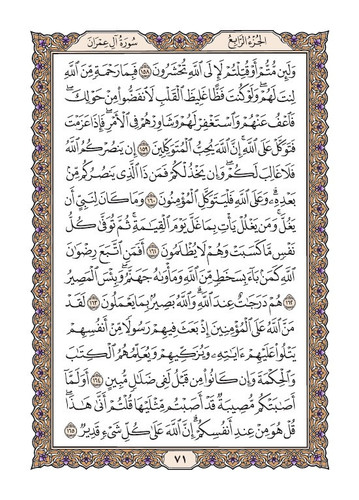 الجزء الرابع
سورة آل عمران
وَلَئِن مُّتُّمْ أَوْ قُتِلْتُمْ لَإِلَى ٱللَّهِ تُحْشَرُونَ ١٥٨ فَبِمَا رَحْمَةٍ مِّنَ ٱللَّهِ
لِنتَ لَهُمْ وَلَوْ كُنتَ فَظًّا غَلِيظَ ٱلْقَلْبِ لَٱنفَضُّوا۟ مِنْ حَوْلِكَ
فَٱعْفُ عَنْهُمْ وَٱسْتَغْفِرْ لَهُمْ وَشَاوِرْهُمْ فِى ٱلْأَمْرِ فَإِذَا عَزَمْتَ
فَتَوَكَّلْ عَلَى ٱللَّهِ إِنَّ ٱللَّهَ يُحِبُّ ٱلْمُتَوَكِّلِينَ ١٥٩ إِن يَنصُرْكُمُ ٱللَّهُ
فَلَا غَالِبَ لَكُمْ وَإِن يَخْذُلْكُمْ فَمَن ذَا ٱلَّذِى يَنصُرُكُم مِّنۢ
بَعْدِهِۦ وَعَلَى ٱللَّهِ فَلْيَتَوَكَّلِ ٱلْمُؤْمِنُونَ ١٦٠ وَمَا كَانَ لِنَبِىٍّ أَن
يَغُلَّ وَمَن يَغْلُلْ يَأْتِ بِمَا غَلَّ يَوْمَ ٱلْقِيَٰمَةِ ثُمَّ تُوَفَّىٰ كُلُّ
نَفْسٍ مَّا كَسَبَتْ وَهُمْ لَا يُظْلَمُونَ ١٦١ أَفَمَنِ ٱتَّبَعَ رِضْوَٰنَ
ٱللَّهِ كَمَنۢ بَآءَ بِسَخَطٍ مِّنَ ٱللَّهِ وَمَأْوَىٰهُ جَهَنَّمُ وَبِئْسَ ٱلْمَصِيرُ
١٦٢ هُمْ دَرَجَٰتٌ عِندَ ٱللَّهِ وَٱللَّهُ بَصِيرٌۢ بِمَا يَعْمَلُونَ ١٦٣ لَقَدْ
مَنَّ ٱللَّهُ عَلَى ٱلْمُؤْمِنِينَ إِذْ بَعَثَ فِيهِمْ رَسُولًا مِّنْ أَنفُسِهِمْ
يَتْلُوا۟ عَلَيْهِمْ ءَايَٰتِهِۦ وَيُزَكِّيهِمْ وَيُعَلِّمُهُمُ ٱلْكِتَٰبَ
وَٱلْحِكْمَةَ وَإِن كَانُوا۟ مِن قَبْلُ لَفِى ضَلَٰلٍ مُّبِينٍ ١٦٤ أَوَلَمَّآ
أَصَٰبَتْكُم مُّصِيبَةٌ قَدْ أَصَبْتُم مِّثْلَيْهَا قُلْتُمْ أَنَّىٰ هَٰذَا
قُلْ هُوَ مِنْ عِندِ أَنفُسِكُمْ إِنَّ ٱللَّهَ عَلَىٰ كُلِّ شَىْءٍ قَدِيرٌ ١٦٥
٧١